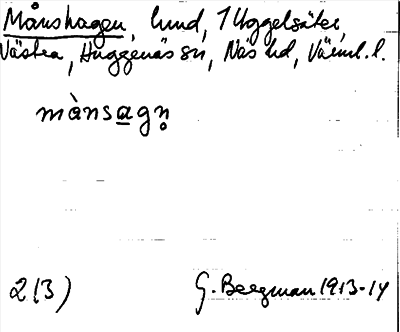 Månshagen, lund, 1 Uggelsäter,
Västra, Huggenäs sn, Näs hd, Värml. l.
mànsa̲gn̥
2(3) G. Bergman 1913-14